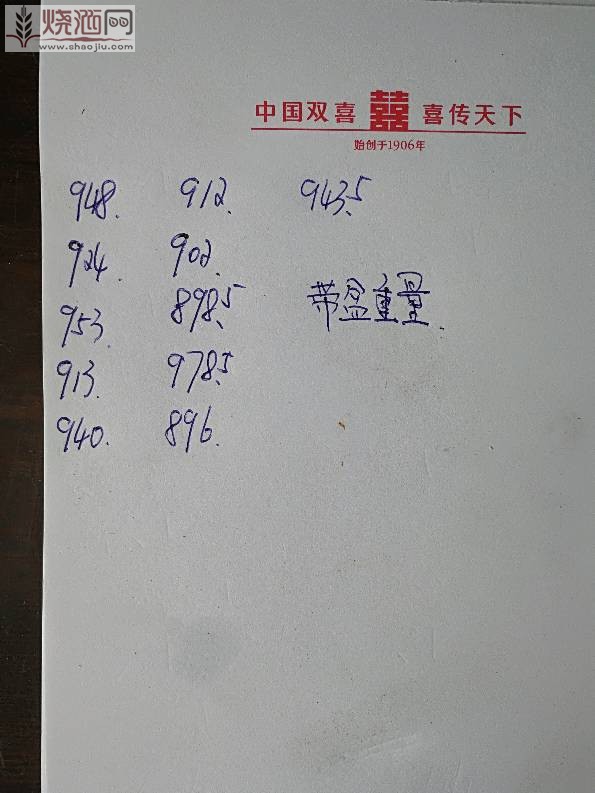 烧酒网
www.shaojiu.com
中国双喜 囍 喜传天下
始创于1906年
948. 912. 943.5
924. 902.
953. 898.5 带盆重量.
913. 978.5
940. 896.